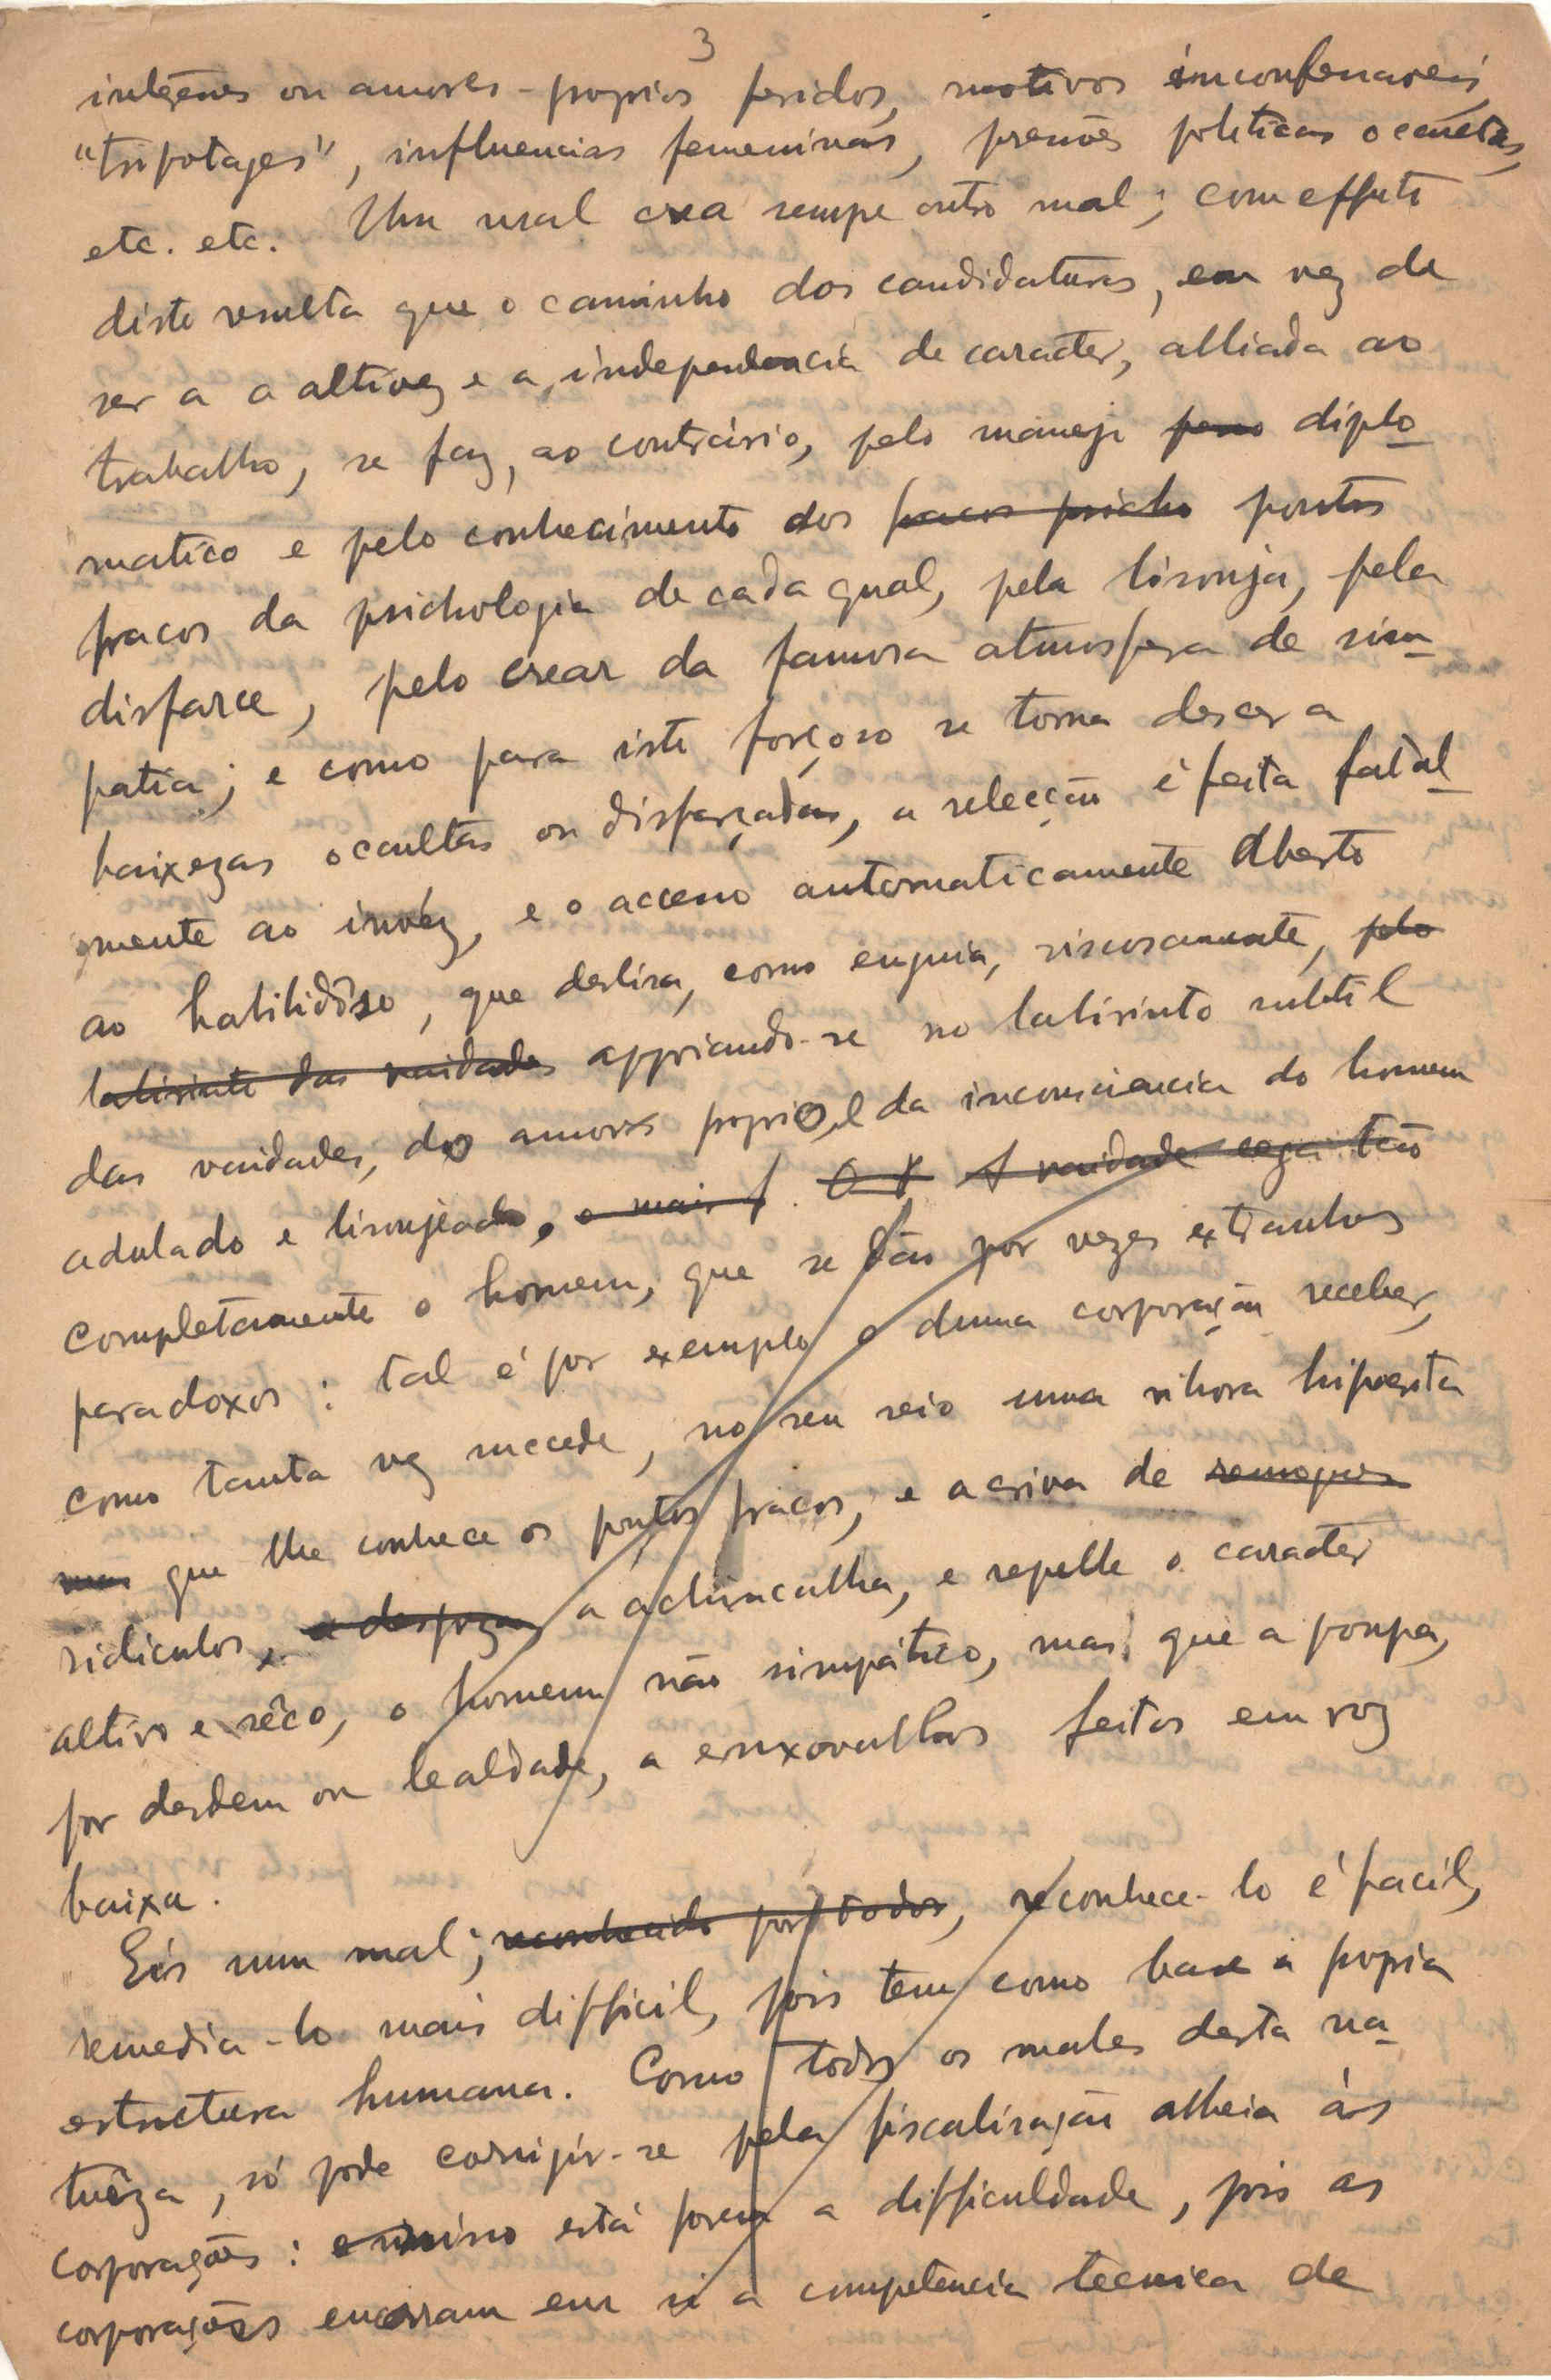 3
ou amores-proprios feridos, motivos inconfessaveis,
"tripotages", influencias femeninas, pressões politicas occultas,
etc. etc. Um mal crea sempre outro mal; com effeito
disto resulta que o caminho das candidaturas, em vez de
ser a a altivez e a independencia de caracter, alliada ao
trabalho, se faz, ao contrário, pelo manejo diplo-
matico e pelo conhecimento dos fracos psicho pontos
fracos da psichologia de cada qual, pela lisonja, pelo
disfarce, pelo crear da famosa atmosfera de sim-
patia; e como para isto forçoso se torna descer a
baixezas occultas ou disfarçadas, a selecção é feita fatal-
mente ao invéz, e o accesso automaticamente aberto
ao habilidoso, que deslisa, como enguia, viscosamente, pelo
labirinto das vaidades appoiando-se no labirinto subtil
das vaidades, dos amores proprios, e da inconsciencia do homem
adulado e lisonjeado, e mais f. O A vaidade cega tão
completamente o homem, que se dão por vezes extranhos
paradoxos: tal é por exemplo o duma corporação receber,
como tanta vez succede, no seu seio uma vibora hipocrita
mas que lhe conhece os pontos fracos, e a criva de remoques
ridiculos, e a despreza, a achincalha, e repelle o caracter
altivo e sêco, o homem não simpático, mas que a poupa,
por desdem ou lealdade, a enxovalhos feitos em voz
baixa.
Eis um mal; reconhecido por todos, reconhece-lo é facil,
remedia-lo mais difficil, pois tem como base a propria
estructura humana. Como todos os males desta na-
tureza, só pode corrigir-se pela fiscalisação alheia ás
corporações: está porem a difficuldade, pois as
corporações encerram em si a competencia tecnica de